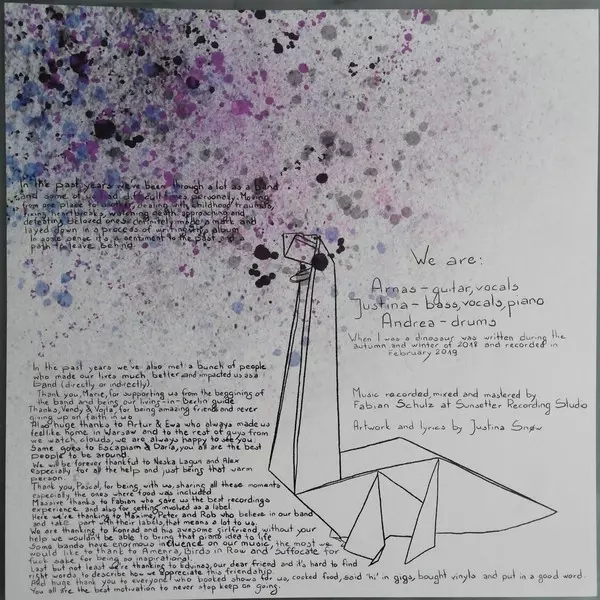 In the past years we've been through a lot as a band
and some of us had difficult times personely. Moving
from one place to another, dealing with childhood traumas,
living heartbreaks, watching death approaching and
defeating beloved ones definitely made a mark and
layed down in a process of writing this album.
In some sence it's a sentiment to the past and a
path to leave behind.
We are:
Arnas - guitar, vocals
Justina - bass, vocals, piano
Andrea - drums
When I was a dinosaur was written during the
autumn and winter of 2018 and recorded in
February 2019
Music recorded, mixed and mastered by
Fabian Schulz at Sunsetter Recording Studio
Artwork and lyrics by Justina Snow
In the past years we've also met a bunch of people
who made our lives much better and impacted us as a
band (directly or indirectly).
Thank you, Marie, for supporting us from the beggining of
the band and being our living-in-Berlin guide
Thanks, Vendy & Vojta, for being amazing friends and never
giving up on faith in us
Also huge thanks to Artur & Ewa who always made us
feel like home in Warsaw and to the rest of guys from
we watch clouds, we are always happy to see you.
Same goes to Escapism & Daria, you all are the best
people to be around.
We will be forever thankful to Neska Lagun and Alex
especially for all the help and just being that warm
person.
Thank you, Pascal, for being with us, sharing all these moments
especially the ones where food was included
Massive thanks to Fabian who gave us the best recordings
experience and also for getting involved as a label
Here we're thanking to Maxime, Peter and Rob who believe in our band
and take part with their labels, that means a lot to us.
We are thanking to Konrad and his awesome girlfriend, without your
help we wouldn't be able to bring that piano idea to life
Some bands have enormous influence on our music, the most we
would like to thank to Amenra, Birds in Row and Suffocate for
fuck sake for being so inspirational.
Last but not least we're thanking to Edvinas, our dear friend and it's hard to find
right words to describe how we appreciate this friendship.
And huge thank you to everyone who booked shows for us, cooked food, said 'hi' in gigs, bought vinyls and put in a good word.
You all are the best motivation to never stop keep on going.